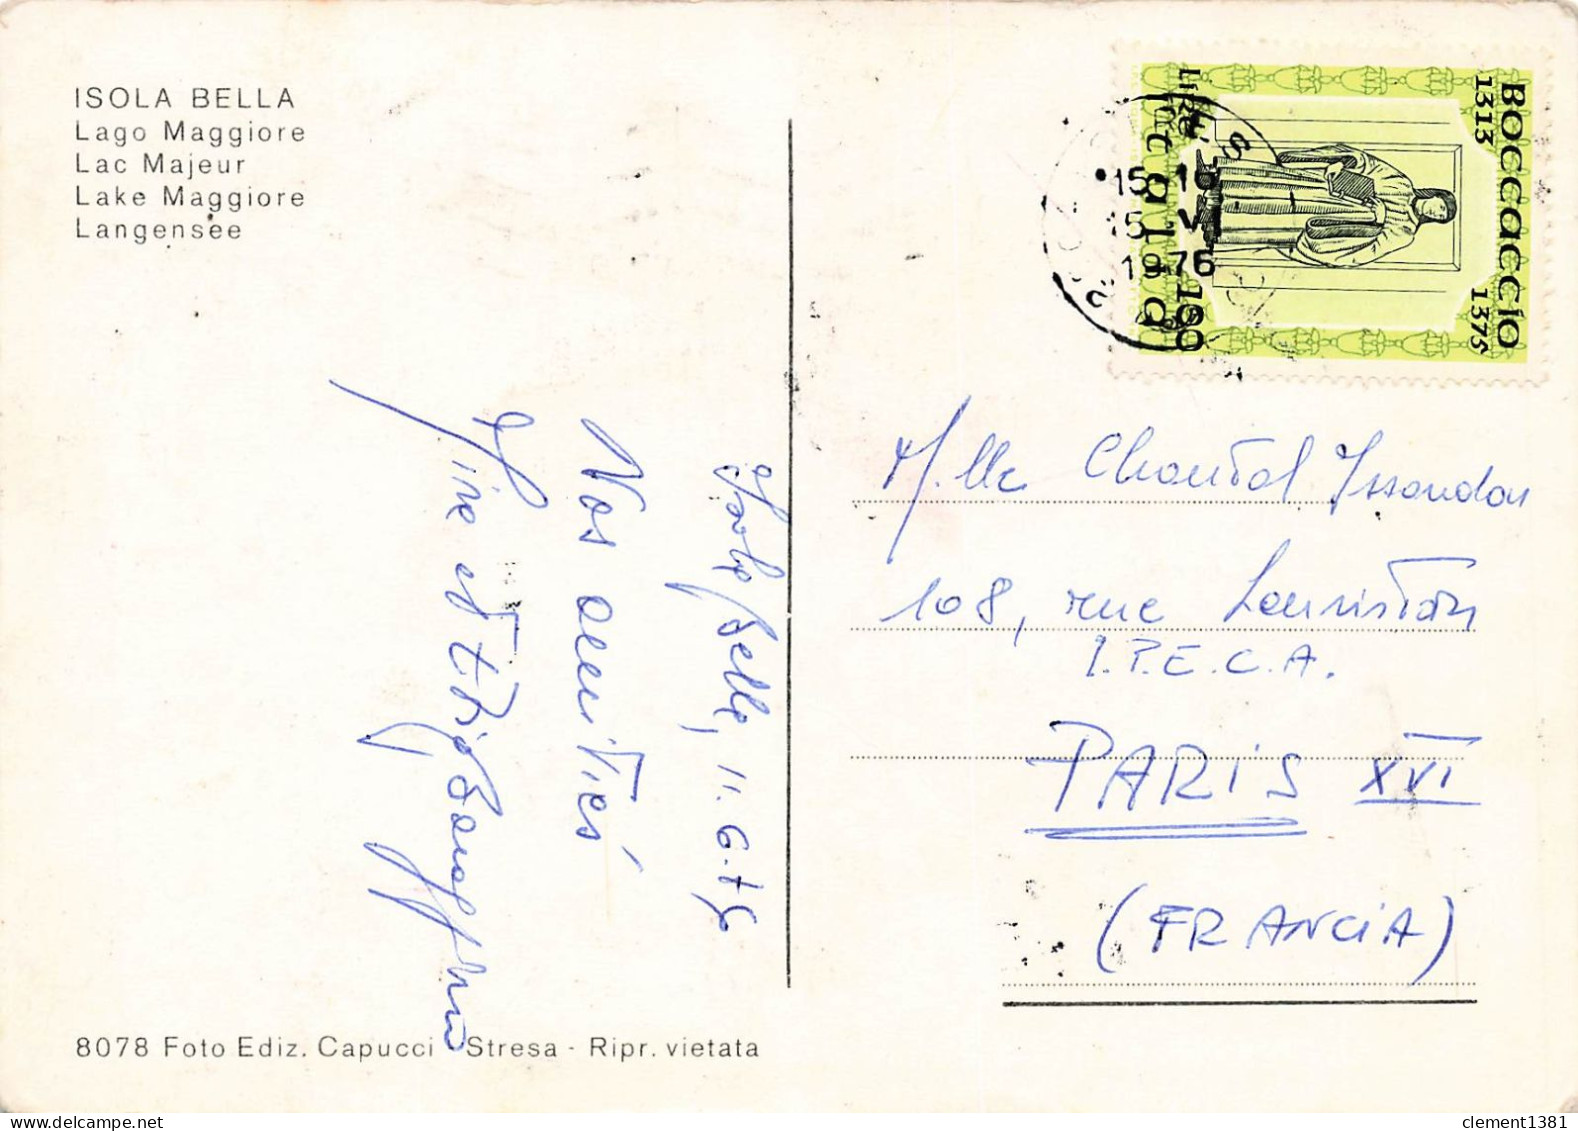 ISOLA BELLA
Lago Maggiore
Lac Majeur
Lake Maggiore
Langensee
Isola Bella, 11.6.76
Nos amitiés
et
8078 Foto Ediz. Capucci Stresa - Ripr. vietata
BOCCACCIO
1313 1375
LIRE 150
italia
15-16
15 VI
1976
M.lle Chantal Issandou
108, rue Lauriston
I.P.E.C.A.
PARIS XVI
(FRANCIA)
clement1381